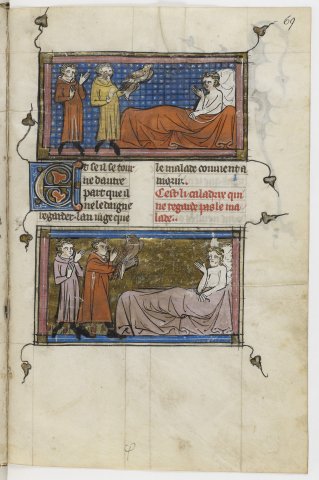 69
Et se il se tour
ne dautre
part que il
ne le daigne
regarder lan iuge que
le malade conuient a
morir..
Cest li caladre qui
ne regarde pas le ma
lade..